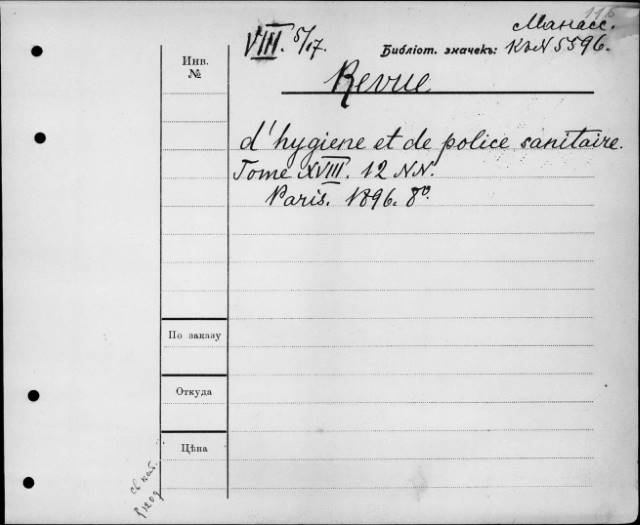 116
Манасс.
VIII. 5/17.
Библіот. значекъ: К.№ 5596.
Инв.
№
Revue
d'hygiene et de police sanitaire.
Tome XVIII. 12 NN.
Paris. 1896. 8º.
По заказу
Откуда
Цѣна